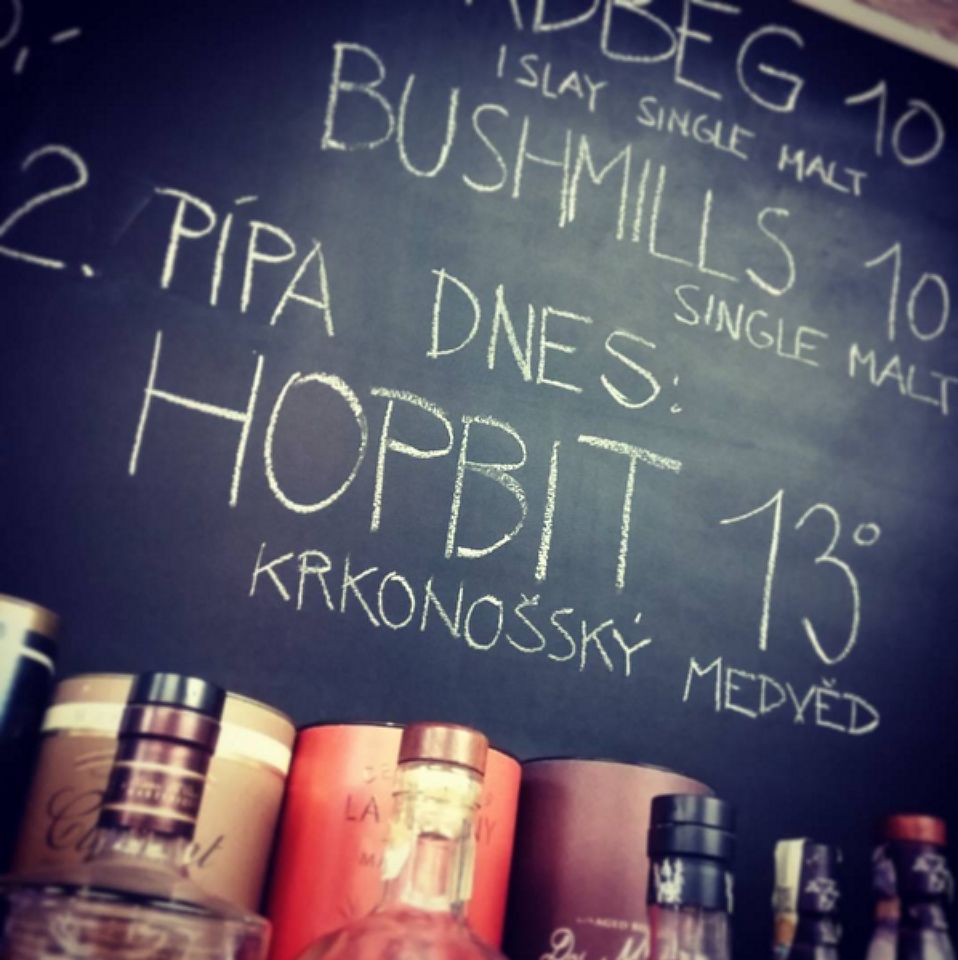 ARDBEG 10
ISLAY SINGLE MALT
BUSHMILLS 10
SINGLE MALT
2. PÍPA DNES:
HOPBIT 13°
KRKONOŠSKÝ MEDVĚD
LA